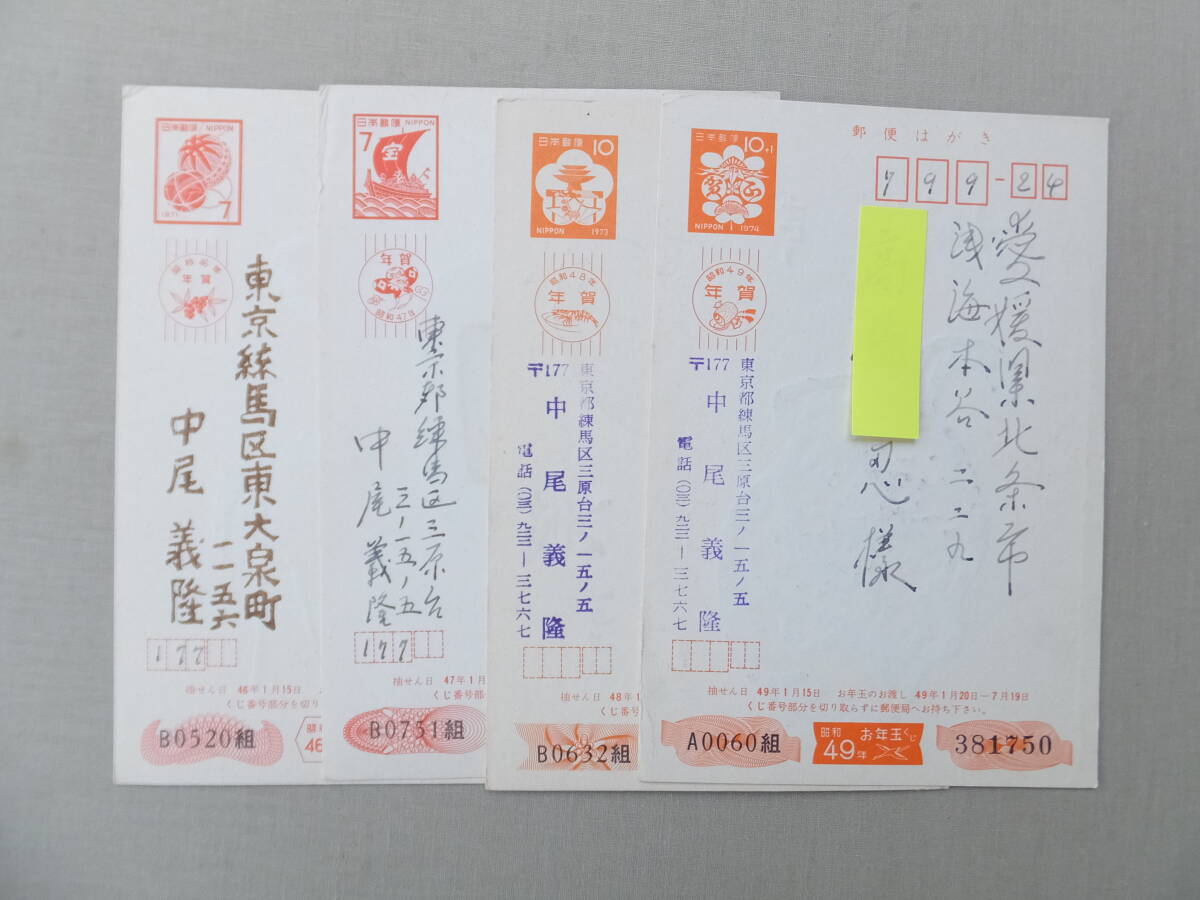 日本郵便 NIPPON
7
1971
昭和46年
年賀
東京練馬区東大泉町
一一五六
中尾義隆
177
抽せん日 46年1月15日
くじ番号部分を切り
B0520組
46
日本郵便 NIPPON
7
宝
年賀
昭和47年
東京都練馬区三原台
三ノ一五ノ五
中尾義隆
177
抽せん日 47年1
くじ番号部
B0731組
日本郵便 10
NIPPON 1973
昭和48年
年賀
〒177 東京都練馬区三原台三ノ一五ノ五
中尾義隆
電話(〇三)九二三―三七六七
抽せん日 48年1
くじ番
B0632組
日本郵便 10+1
賀正
NIPPON 1974
郵便はがき
799-24
昭和49年
年賀
愛媛県北条市
浅海本谷二二二九
忍様
〒177 東京都練馬区三原台三ノ一五ノ五
中尾義隆
電話(〇三)九二三―三七六七
抽せん日 49年1月15日 お年玉のお渡し 49年1月20日―7月19日
くじ番号部分を切り取らずに郵便局へお持ち下さい。
A0060組
昭和49年 お年玉くじ
381750